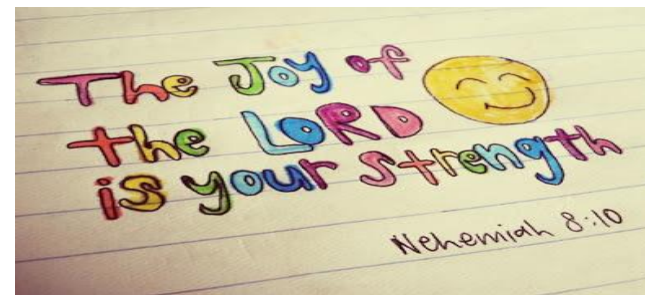 The Joy of
the LORD
is your strength
Nehemiah 8:10